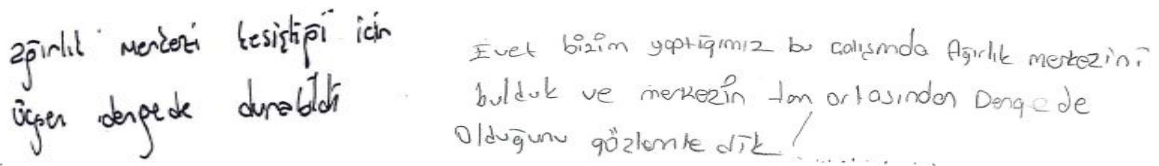 ağırlık merkezi kesiştiği için
üçgen dengede durabildi
Evet bizim yaptığımız bu çalışmda Ağırlık merkezini
bulduk ve merkezin tam ortasından Dengede
Olduğunu gözlemledik